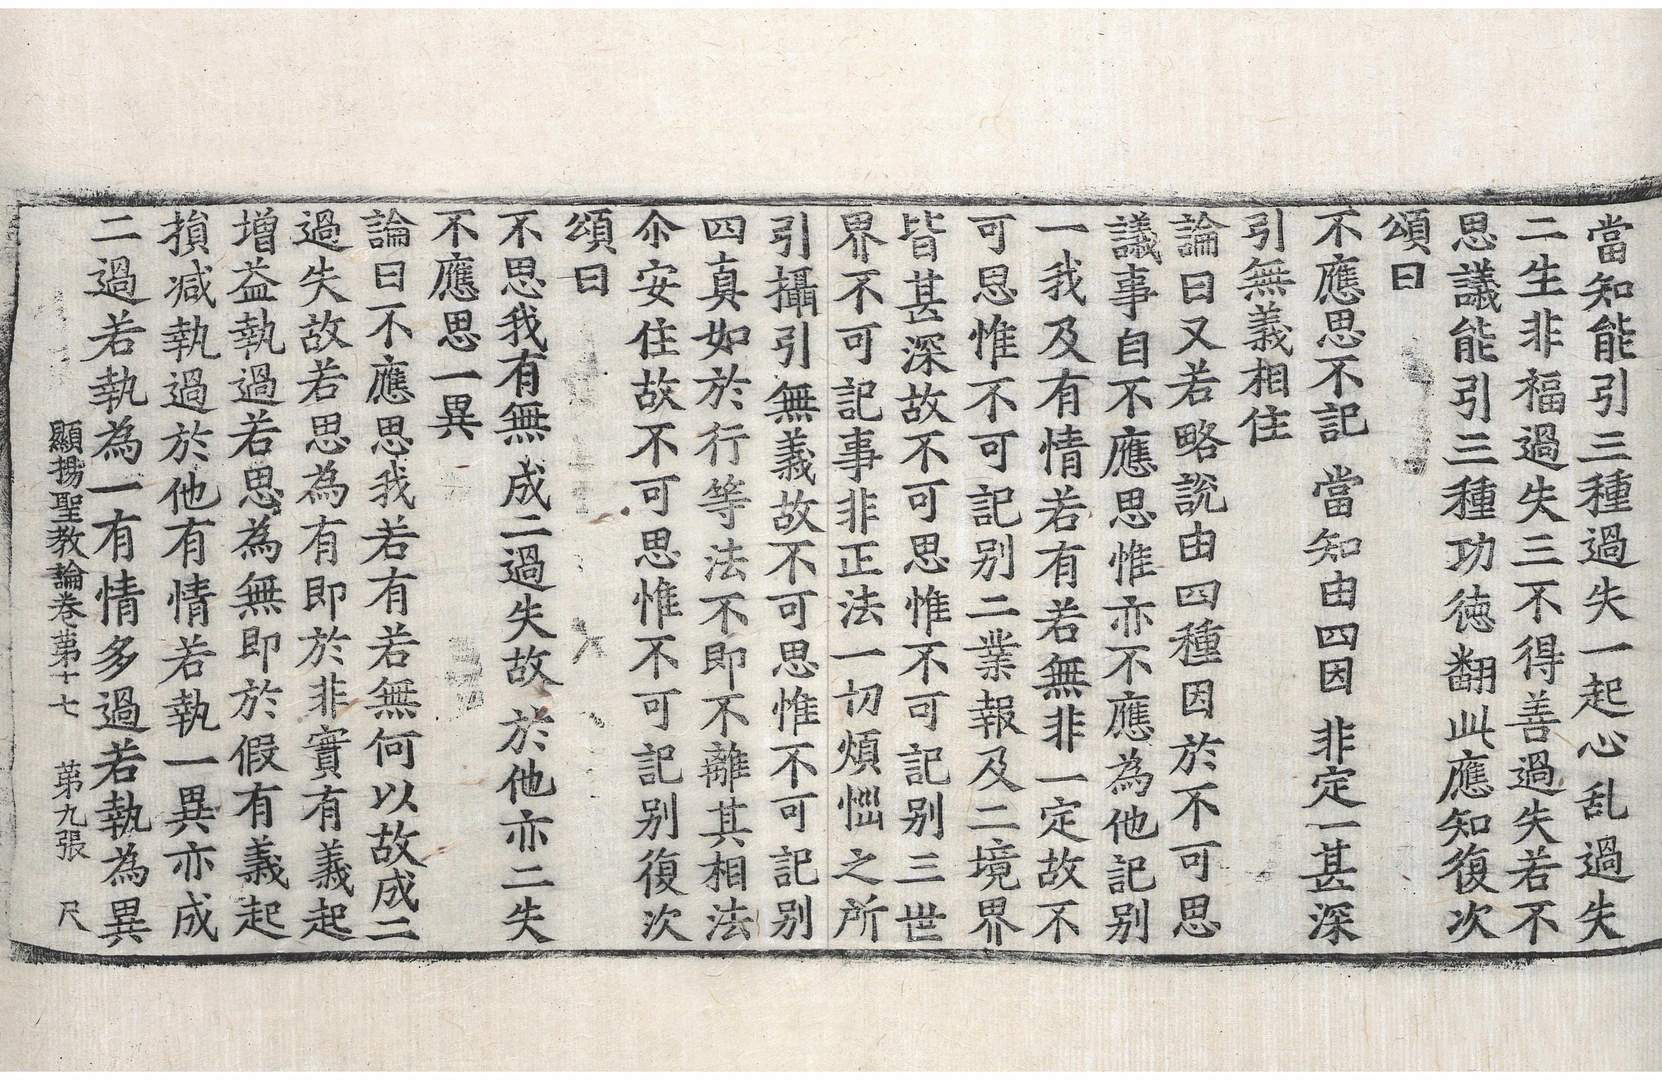 當知能引三種過失一起心乱過失
二生非福過失三不得善過失若不
思議能引三種功徳翻此應知復次
頌曰
不應思不記 當知由四因 非定一甚深
引無義相住
論曰又若略説由四種因於不可思
議事自不應思惟亦不應為他記别
一我及有情若有若無非一定故不
可思惟不可記别二業報及二境界
皆甚深故不可思惟不可記别三世
界不可記事非正法一切煩惱之所
引攝引無義故不可思惟不可記别
四真如於行等法不即不離其相法
尒安住故不可思惟不可記别復次
頌曰
不思我有無 成二過失故 於他亦二失
不應思一異
論曰不應思我若有若無何以故成二
過失故若思為有即於非實有義起
增益執過若思為無即於假有義起
損减執過於他有情若執一異亦成
二過若執為一有情多過若執為異
顯揚聖教論卷苐十七 苐九張 尺